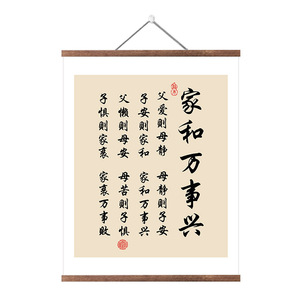 家和万事兴
父爱則母静 母静則子安
子安則家和 家和万事兴
父懒則母苦 母苦則子惧
子惧則家衰 家衰万事敗